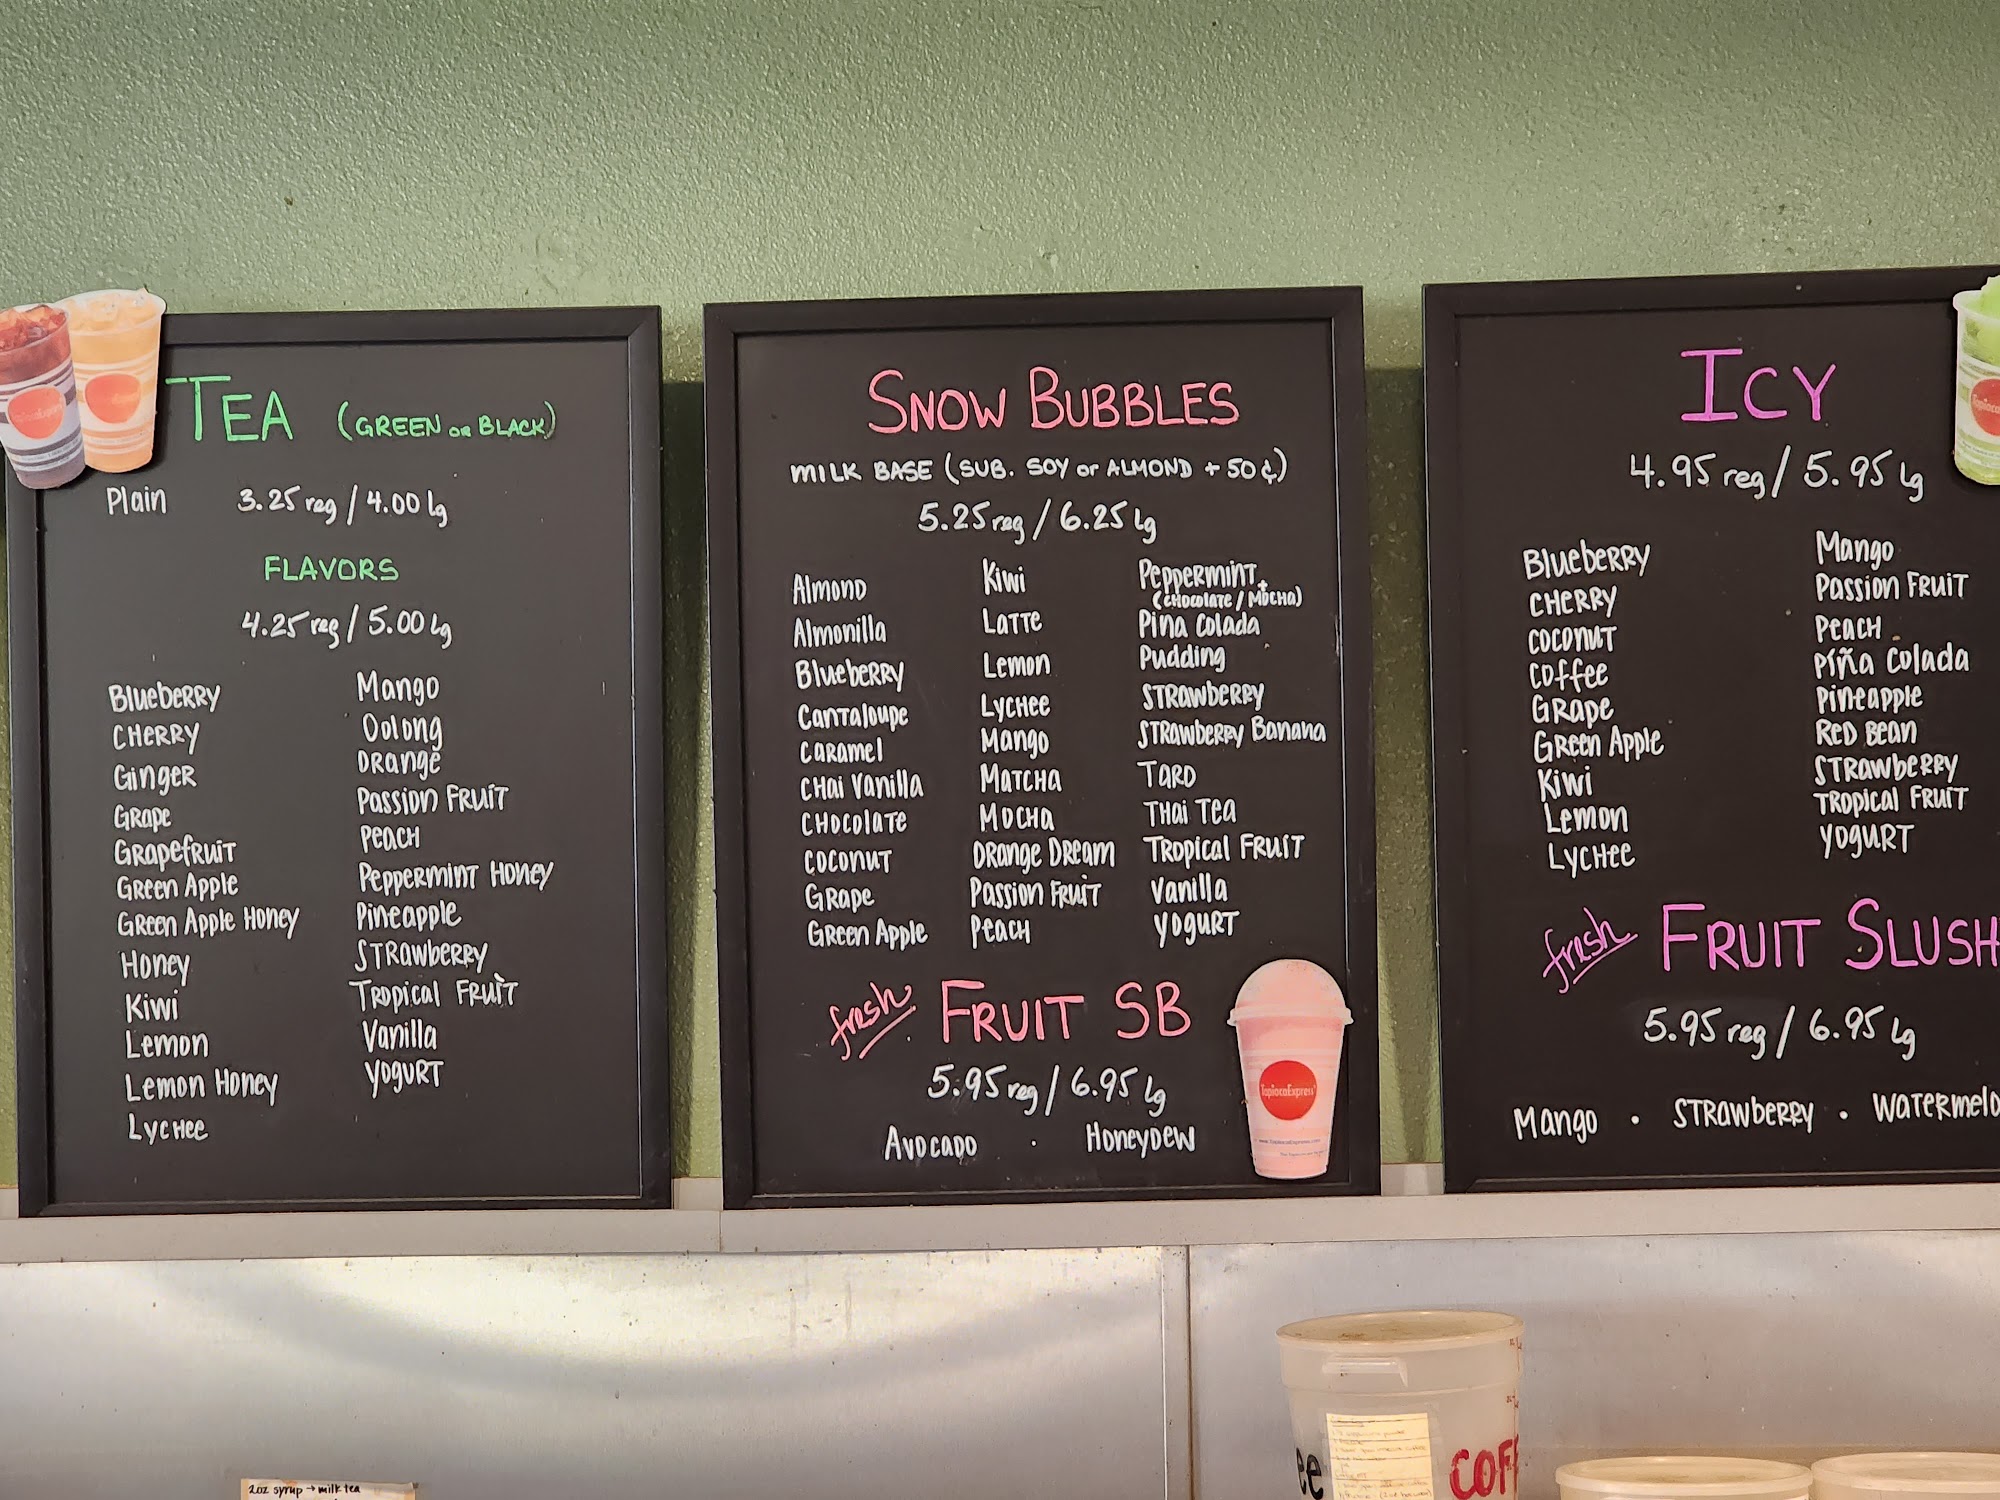 TEA (GREEN or BLACK)
Plain 3.25 reg / 4.00 lg
FLAVORS
4.25 reg / 5.00 lg
Blueberry
Cherry
Ginger
Grape
Grapefruit
Green Apple
Green Apple Honey
Honey
Kiwi
Lemon
Lemon Honey
Lychee
Mango
Oolong
Orange
Passion Fruit
Peach
Peppermint Honey
Pineapple
Strawberry
Tropical Fruit
Vanilla
Yogurt
SNOW BUBBLES
MILK BASE (SUB. SOY or ALMOND + 50¢)
5.25 reg / 6.25 lg
Almond
Almonilla
Blueberry
Cantaloupe
Caramel
Chai Vanilla
Chocolate
Coconut
Grape
Green Apple
Kiwi
Latte
Lemon
Lychee
Mango
Matcha
Mocha
Orange Dream
Passion Fruit
Peach
Peppermint +
(Chocolate / Mocha)
Pina Colada
Pudding
Strawberry
Strawberry Banana
Taro
Thai Tea
Tropical Fruit
Vanilla
Yogurt
fresh FRUIT SB
5.95 reg / 6.95 lg
Avocado · Honeydew
TapiocaExpress
ICY
4.95 reg / 5.95 lg
Blueberry
Cherry
Coconut
Coffee
Grape
Green Apple
Kiwi
Lemon
Lychee
Mango
Passion Fruit
Peach
Píña Colada
Pineapple
Red Bean
Strawberry
Tropical Fruit
Yogurt
fresh FRUIT SLUSH
5.95 reg / 6.95 lg
Mango · Strawberry · Watermelo
2oz syrup → milk tea
ee
COFF